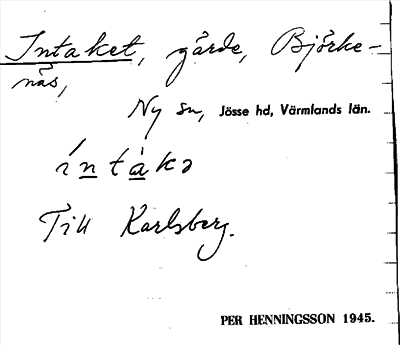 Intaket, gärde, Björke-
näs,
Ny sn, Jösse hd, Värmlands län.
íntàkə
Till Karlsberg.
PER HENNINGSSON 1945.